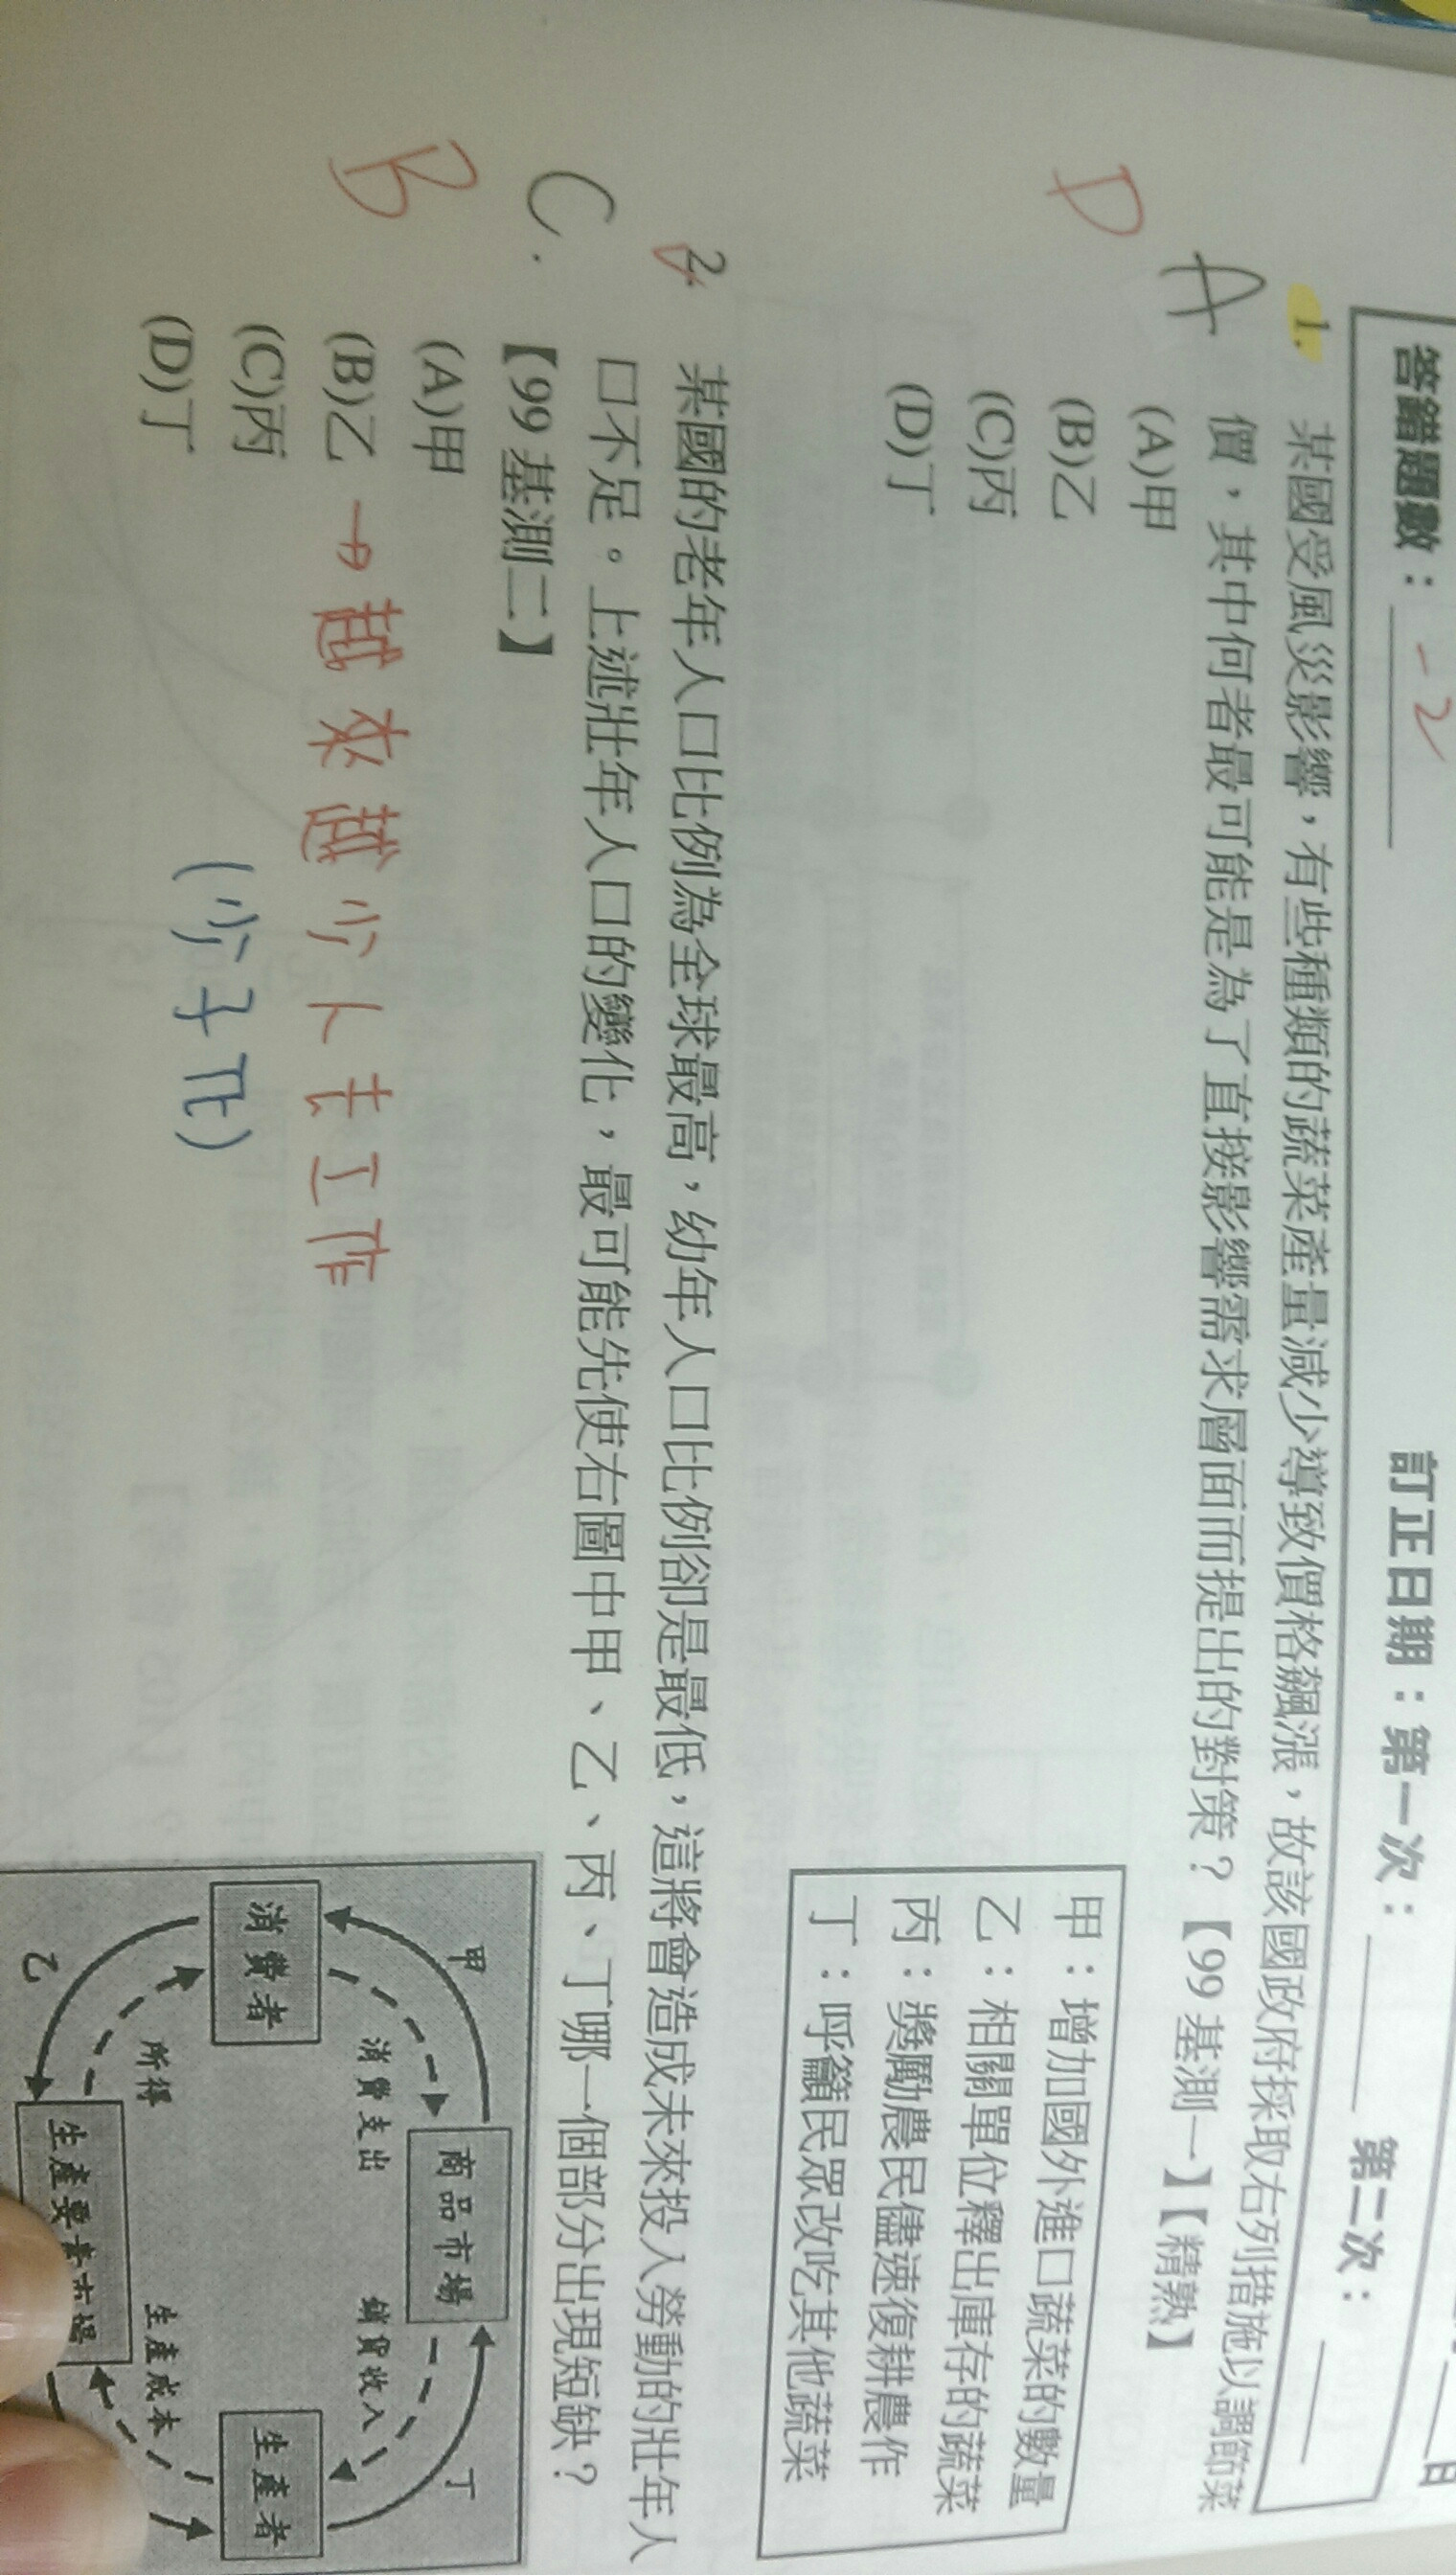 答錯題數：-2 訂正日期：第一次： 第二次：
D
A
1. 某國受風災影響，有些種類的蔬菜產量減少導致價格飆漲，故該國政府採取右列措施以調節菜
價，其中何者最可能是為了直接影響需求層面而提出的對策？【99 基測一】【精熟】
(A)甲
(B)乙
(C)丙
(D)丁
甲：增加國外進口蔬菜的數量
乙：相關單位釋出庫存的蔬菜
丙：獎勵農民儘速復耕農作
丁：呼籲民眾改吃其他蔬菜
C.
B
2. 某國的老年人口比例為全球最高，幼年人口比例卻是最低，這將會造成未來投入勞動的壯年人
口不足。上述壯年人口的變化，最可能先使右圖中甲、乙、丙、丁哪一個部分出現短缺？
【99 基測二】
(A)甲
(B)乙 → 越來越少人去工作
(C)丙
(少子化)
(D)丁
甲
丁
商品市場
消費支出
銷貨收入
消費者
生產者
所得
生產成本
乙
生產要素市場